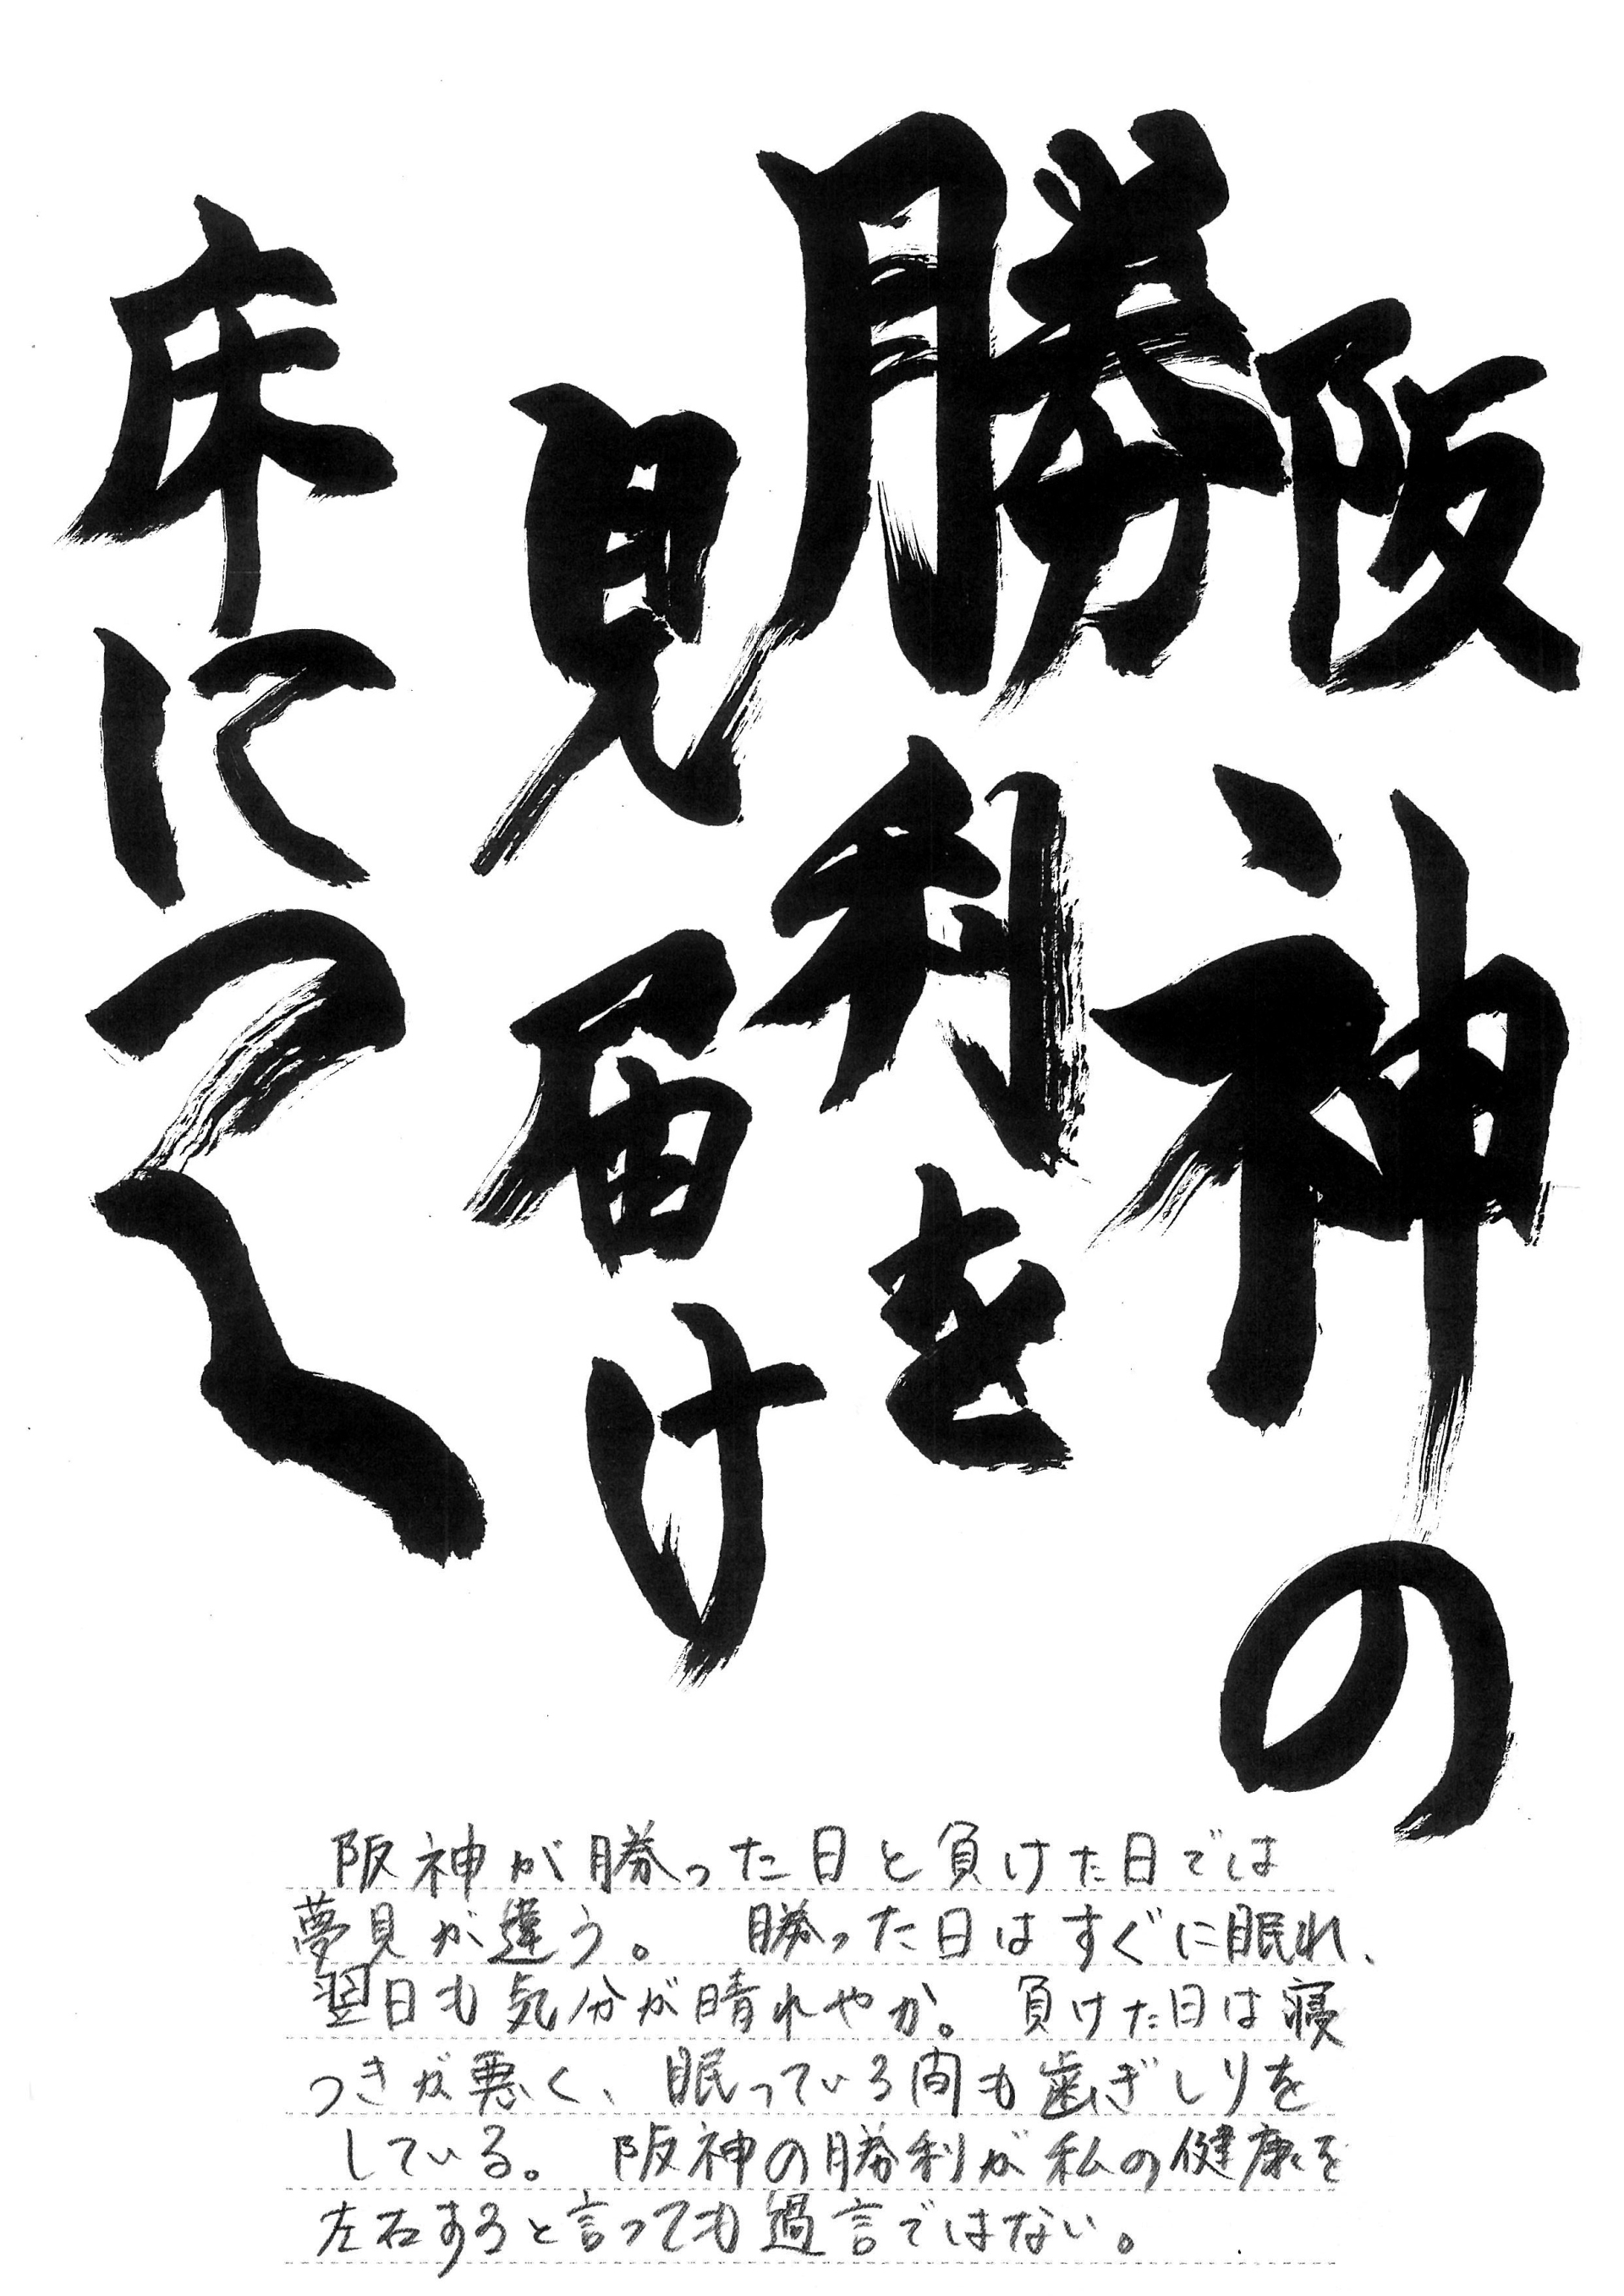 阪神の
勝利を
見届け
床につく
阪神が勝った日と負けた日では
夢見が違う。 勝った日はすぐに眠れ、
翌日も気分が晴れやか。 負けた日は寝
つきが悪く、眠っている間も歯ぎしりを
している。 阪神の勝利が私の健康を
左右すると言っても過言ではない。